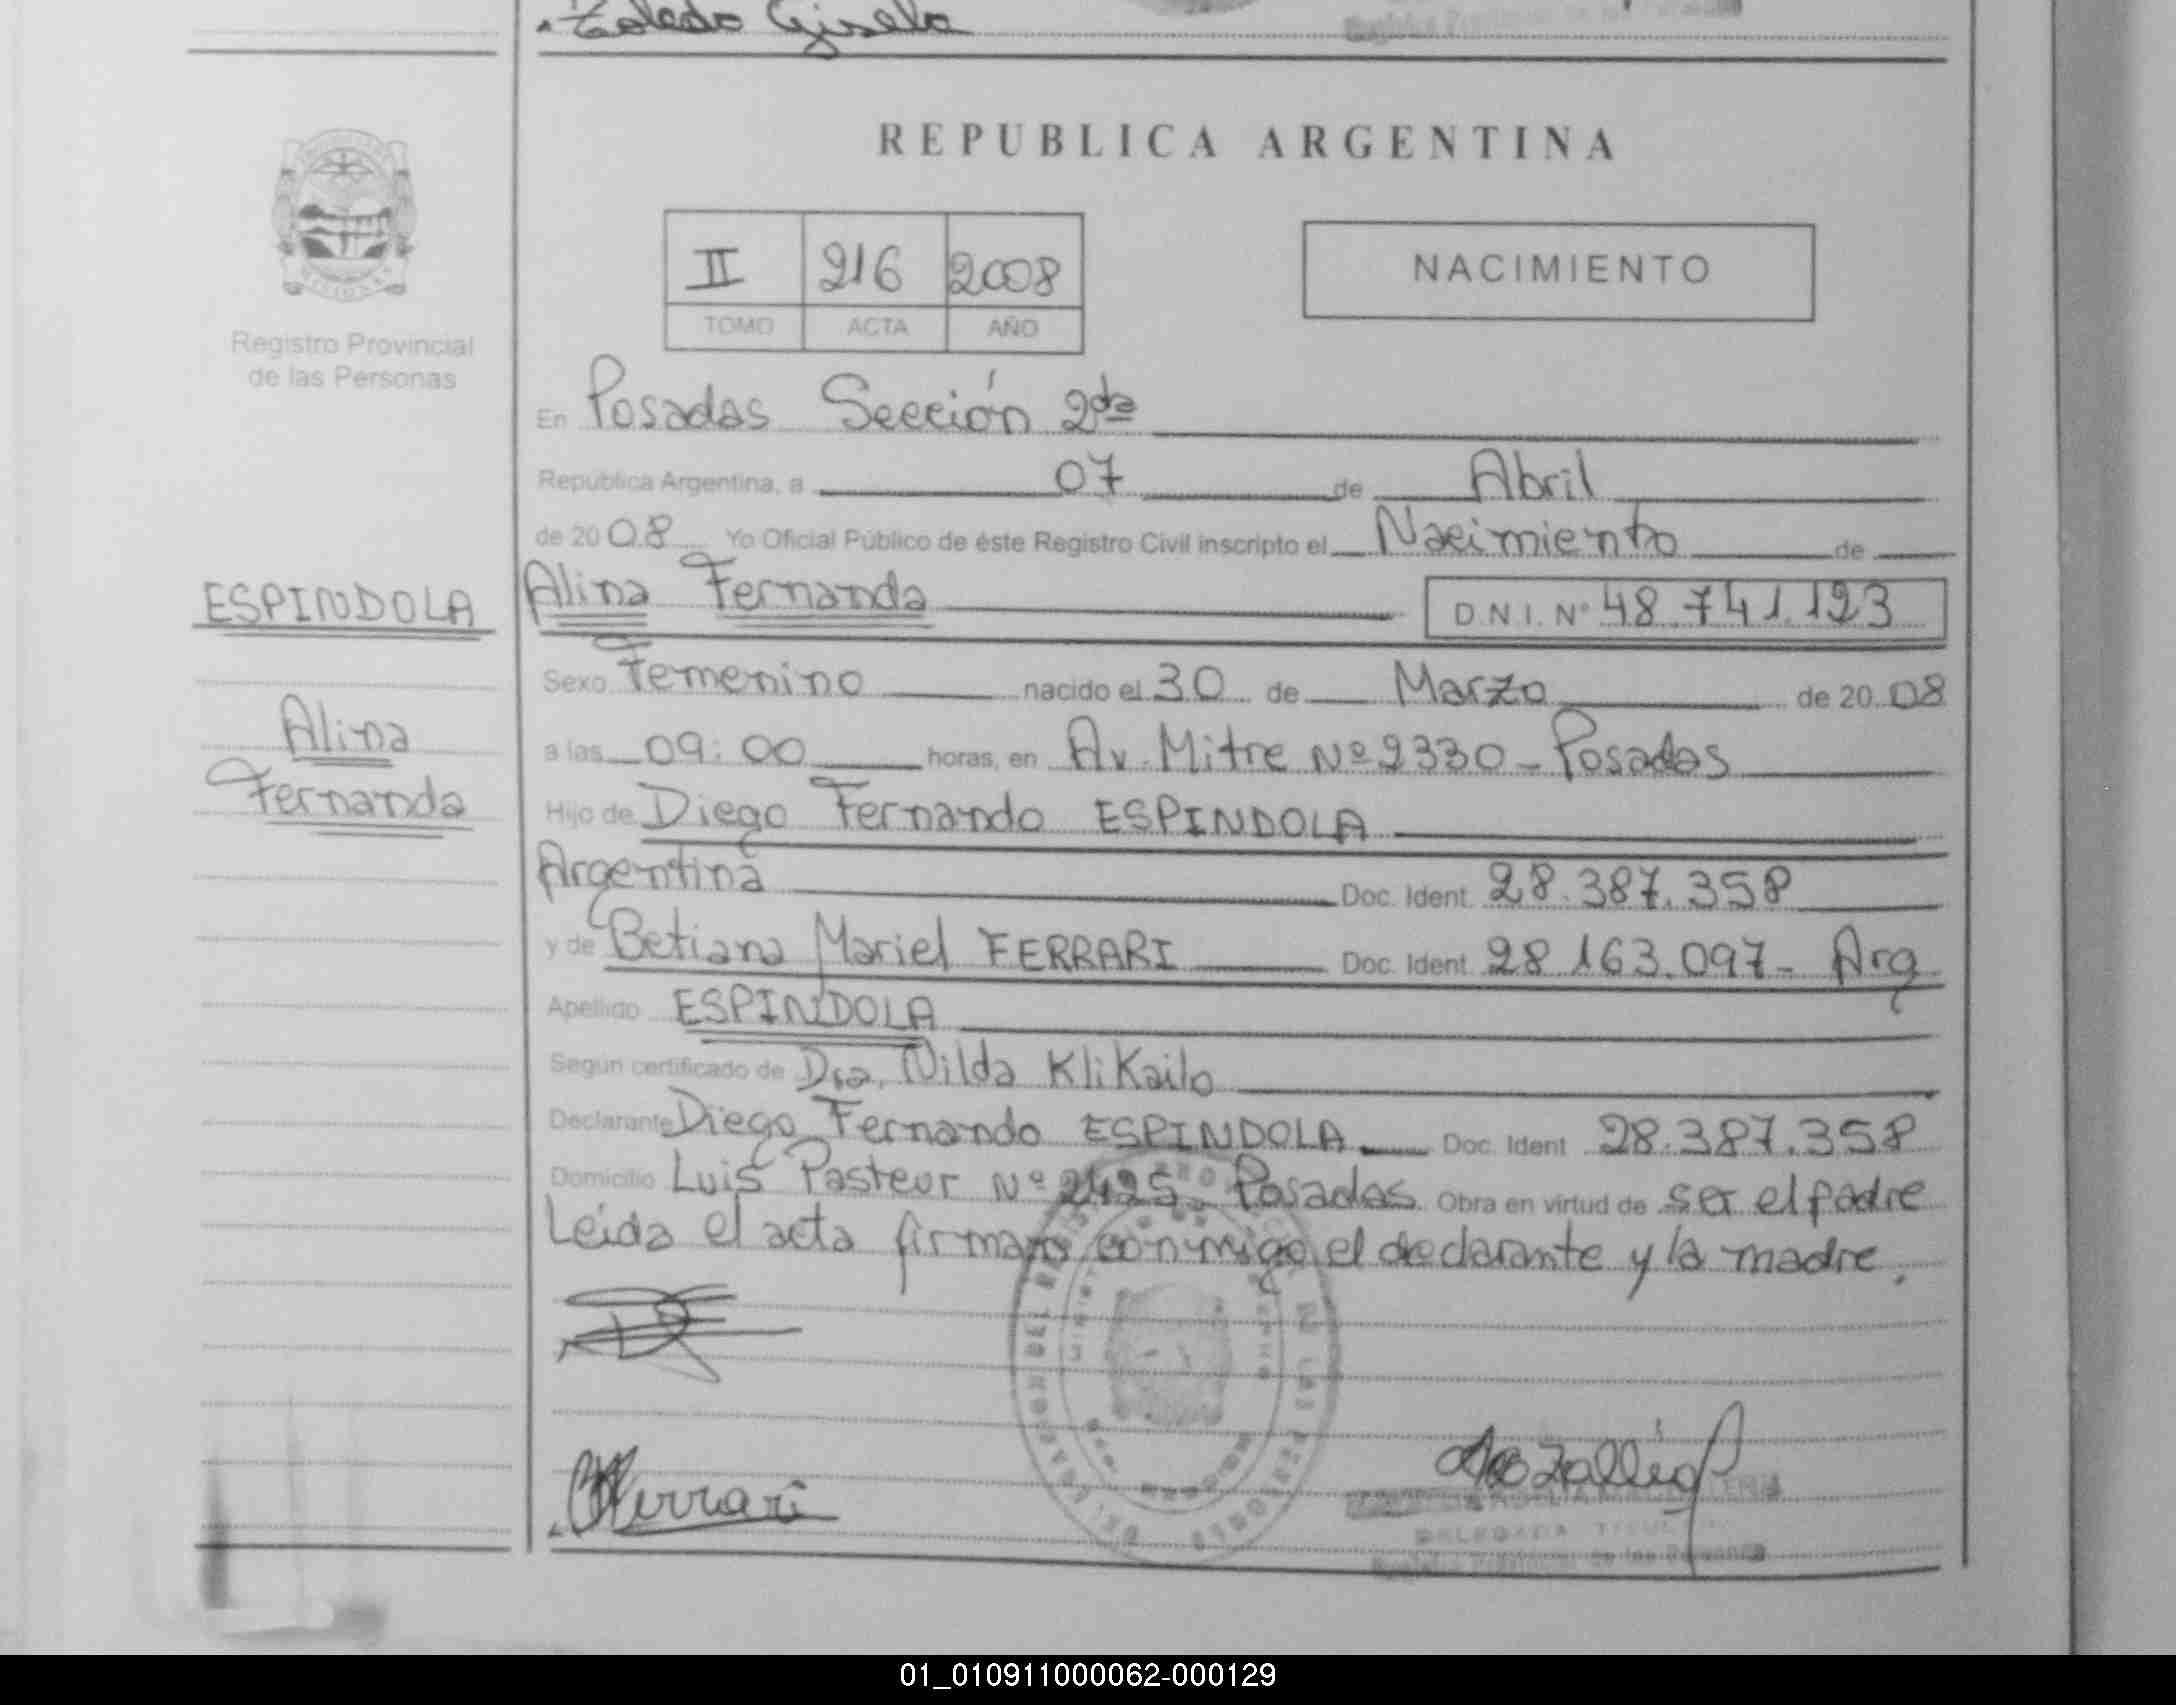 Toledo Gisela
REPUBLICA ARGENTINA
II 216 2008
TOMO ACTA AÑO
NACIMIENTO
Registro Provincial
de las Personas
En Posadas Sección 2da
República Argentina, a 07 de Abril
de 2008 Yo Oficial Público de éste Registro Civil inscripto el Nacimiento de
ESPINDOLA Alina Fernanda D.N.I. Nº 48.741.123
Sexo Femenino nacido el 30 de Marzo de 2008
Alina
a las 09:00 horas, en Av. Mitre Nº 2330 - Posadas
Fernanda
Hijo de Diego Fernando ESPINDOLA
Argentina Doc. Ident. 28.387.358
y de Betiana Mariel FERRARI Doc. Ident. 28 163.097 - Arg
Apellido ESPINDOLA
Según certificado de Dra. Nilda KliKailo
Declarante Diego Fernando ESPINDOLA Doc. Ident 28.387.358
Domicilio Luis Pasteur Nº 2425 - Posadas Obra en virtud de ser el padre
Leida el acta firman conmigo el declarante y la madre.
Ferrari
DELEGADA TITULAR
Registro Provincial de las Personas
01_010911000062-000129